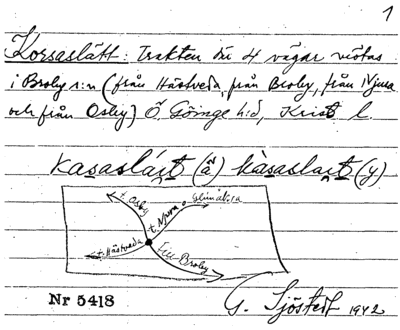 1
Korsaslätt: Trakten där 4 vägar mötas
i Broby s:n (från Hästveda, från Broby, från Njura
och från Osby) Ö Göinge h:d, Krist l.
kasaslä́tt (ä) kàsaslätt (y)
t. Osby
t. Njura
Glimåkra
t. Hästveda
från Broby
Nr 5418
G. Sjöstedt 1942